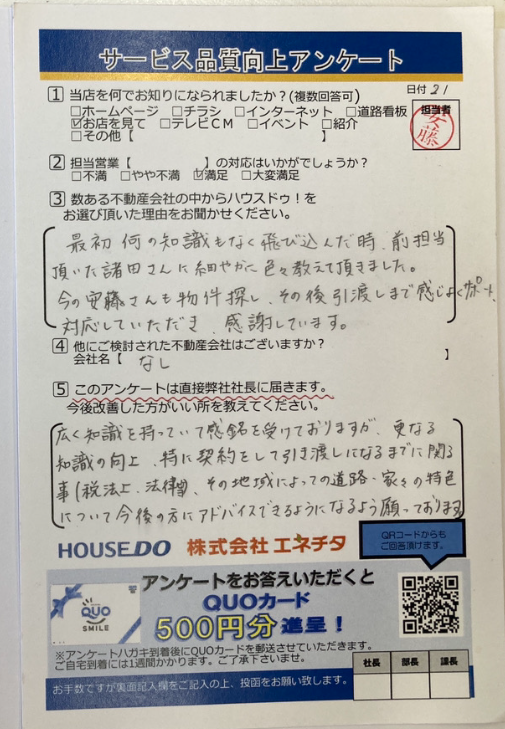 サービス品質向上アンケート
日付 21
担当者
安藤
1 当店を何でお知りになられましたか？(複数回答可)
□ホームページ □チラシ □インターネット □道路看板
☑お店を見て □テレビCM □イベント □紹介
□その他【 】
2 担当営業【 】の対応はいかがでしょうか？
□不満 □やや不満 ☑満足 □大変満足
3 数ある不動産会社の中からハウスドゥ！を
お選び頂いた理由をお聞かせください。
最初何の知識もなく飛び込んだ時、前担当
頂いた諸田さんに細やかに色々教えて頂きました。
今の安藤さんも物件探し、その後引渡しまで感じよくサポート、
対応していただき、感謝しています。
4 他にご検討された不動産会社はございますか？
会社名【 なし 】
5 このアンケートは直接弊社社長に届きます。
今後改善した方がいい所を教えてください。
広く知識を持っていて感銘を受けておりますが、更なる
知識の向上、特に契約をして引き渡しになるまでに関る
事(税法上、法律)、その地域によっての道路・家々の特色
について今後の方にアドバイスできるようになるよう願っております
HOUSEDO 株式会社 エネチタ
QRコードからも
ご回答頂けます。
アンケートをお答えいただくと
QUOカード
500円分 進呈！
QUO
SMILE
※アンケートハガキ到着後にQUOカードを郵送させていただきます。
ご自宅到着には1週間かかります。ご了承下さいませ。
社長 部長 課長
お手数ですが裏面記入欄をご記入の上、投函をお願い致します。